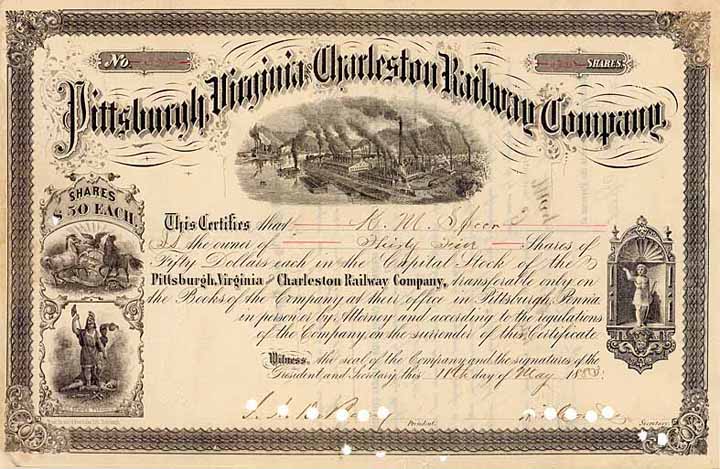 No.
SHARES
Pittsburgh, Virginia Charleston Railway Company
SHARES
$50 EACH.
This Certifies that M. Speer
is the owner of Thirty Shares of
Fifty Dollars each in the Capital Stock of the
Pittsburgh, Virginia and Charleston Railway Company, transferable only on
the Books of the Company at their office in Pittsburgh, Penn'a
in person or by Attorney and according to the regulations
of the Company, on the surrender of this Certificate
Witness, the seal of the Company and the signatures of the
President and Secretary, this 18th day of May
President. Secretary.